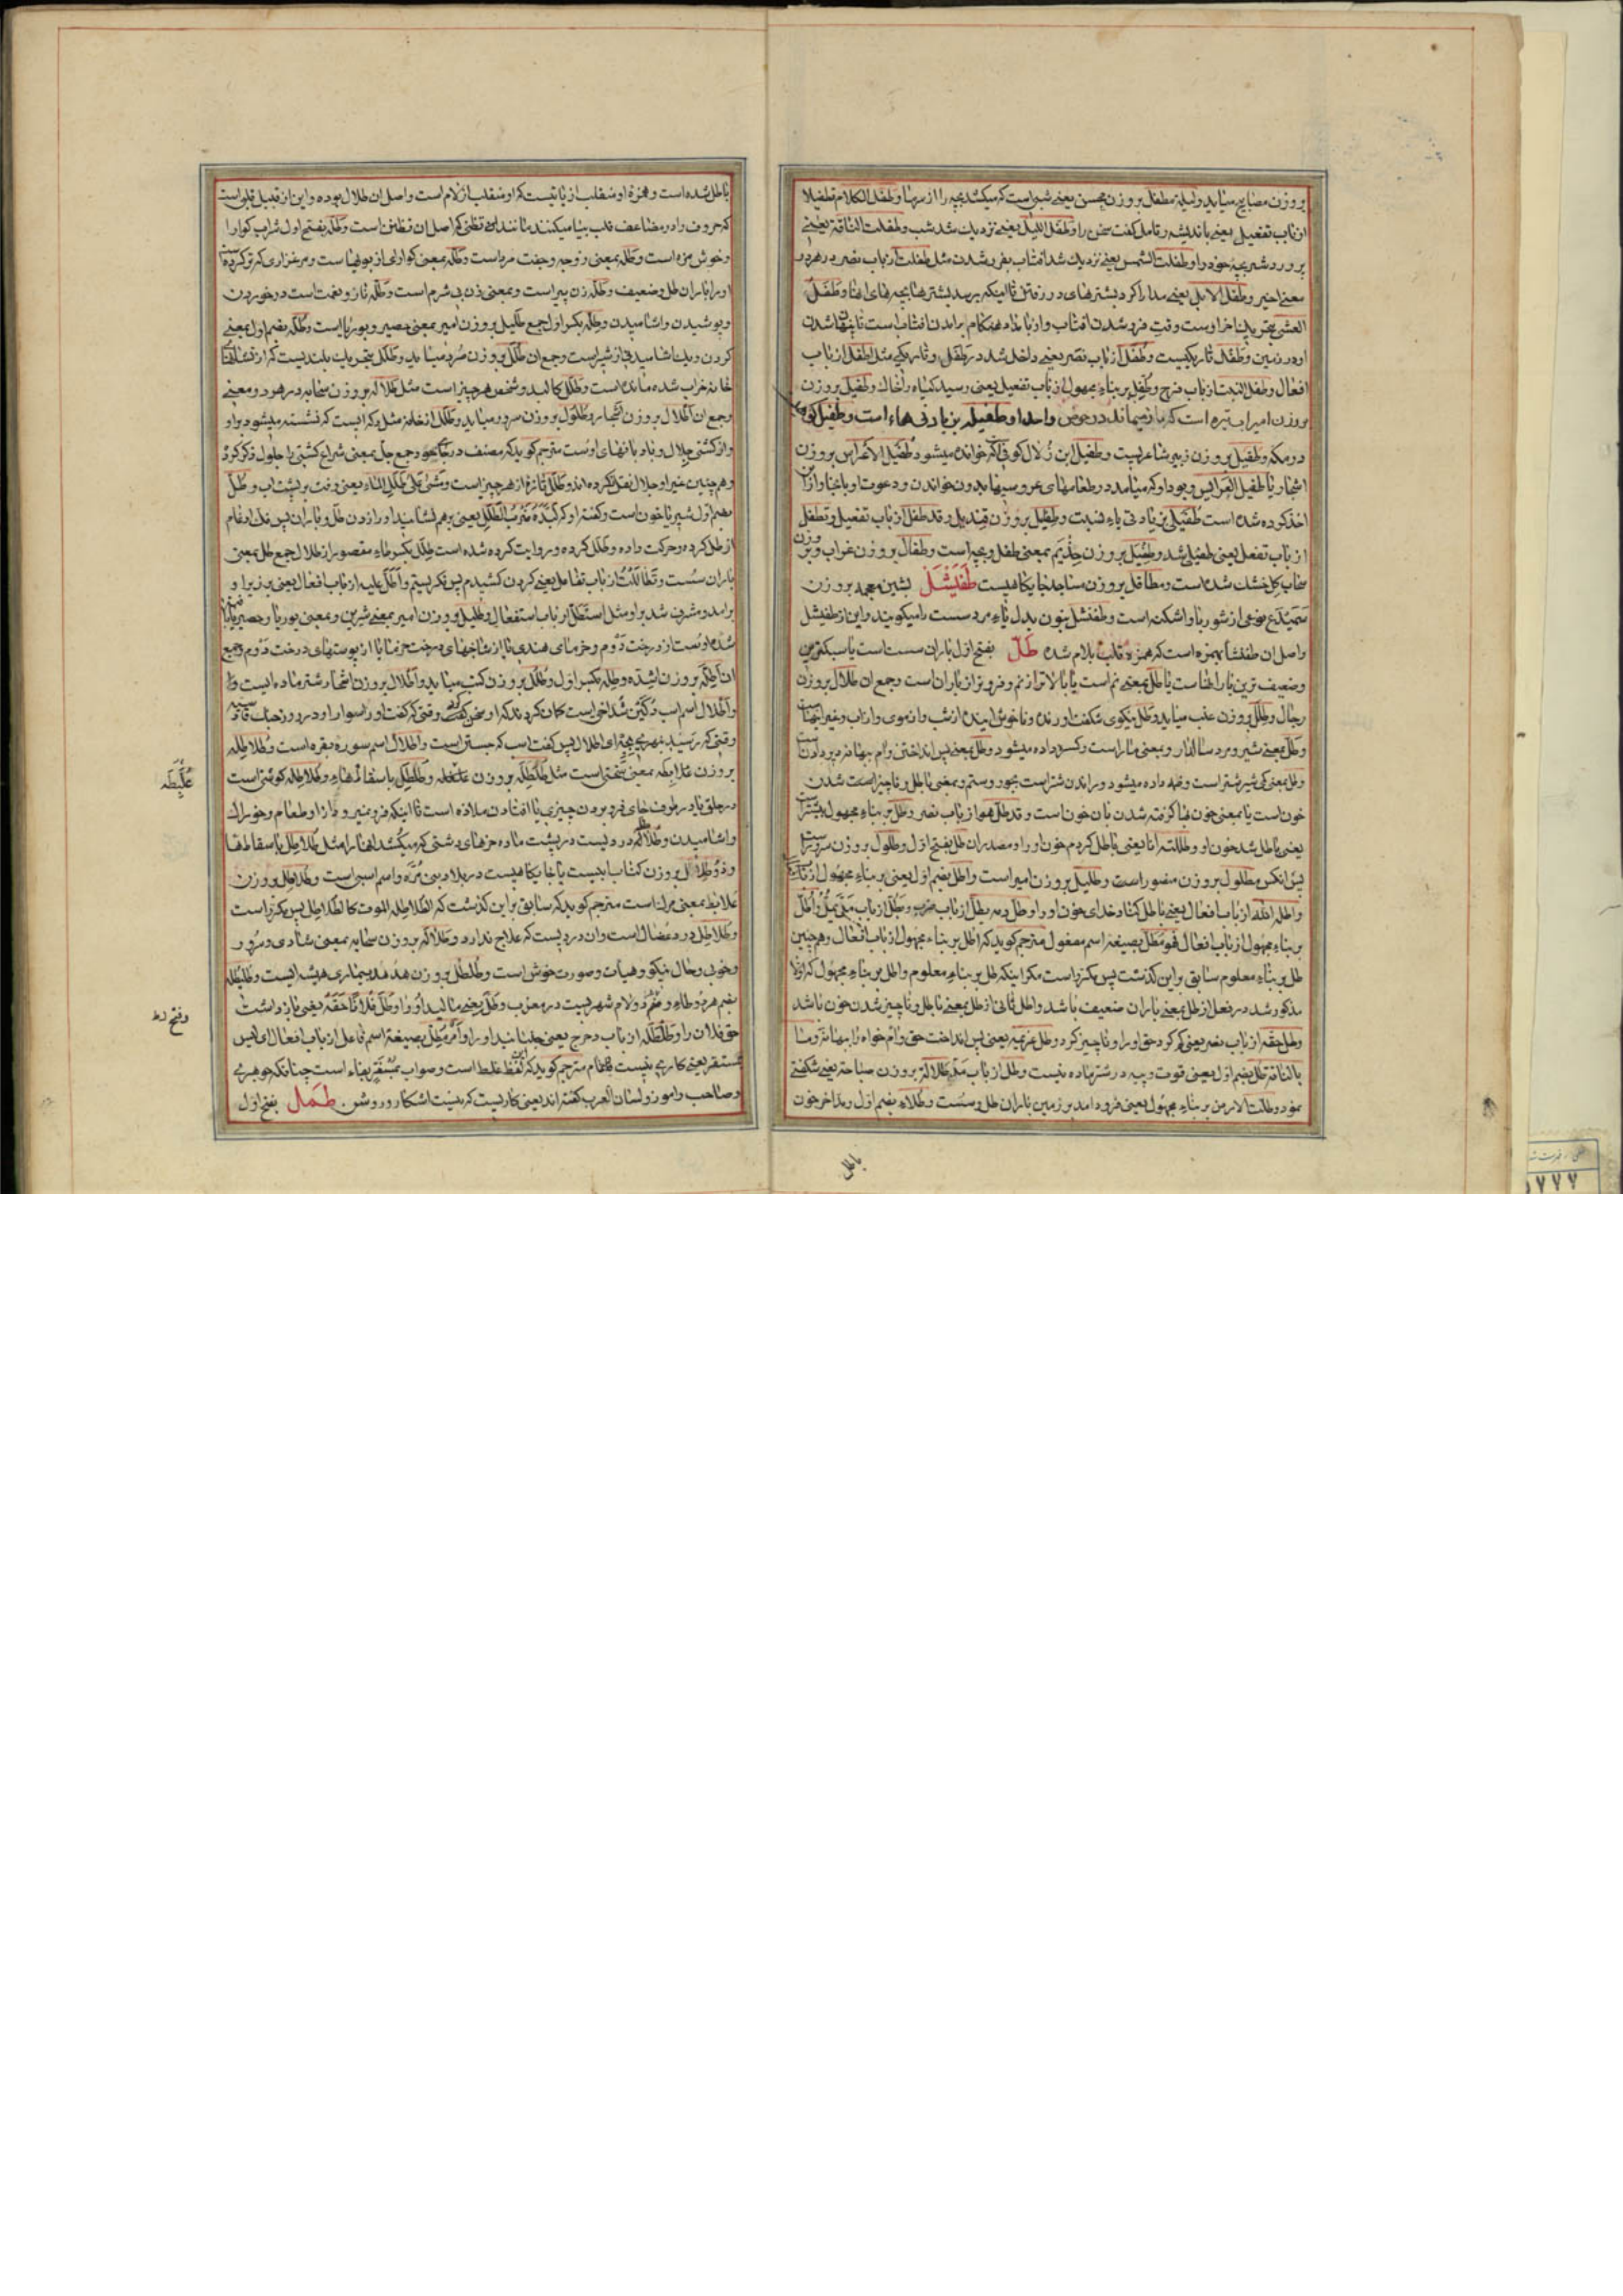 بروزن مصابیح میاید ولیلة مطفل بروزن محسن یعنی شبی است که میکشد بچه را از سرما وطفّل الکلام تطفیلا
از باب تفعیل یعنی باندیشه وتامل گفت سخن را وطفّل اللیل یعنی نزدیک شد شب وطفلت الناقة یعنی
پرورد شتر بچه خود را وطفلت الشمس یعنی نزدیک شد افتاب بفروشدن مثل طفلت از باب نصر در هر دو
معنی اخیر وطفّل الابل یعنی مدارا کرد بشترهای در رفتن تا اینکه برسد بشترها بچه های انها وطفل
العشی بتحریک اخر اوست وقت فرو شدن افتاب واز بامداد هنگام برامدن افتاب است تا پنهان شدن
او در زمین وطفل تاریکیست وطفل از باب نصر یعنی داخل شد در طفل وتاریکی مثل اطفل از باب
افعال وطفل النبت از باب فرح وطفل بر بناء مجهول از باب تفعیل یعنی رسید گیاه را خاک وطفیل بروزن
بروزن امیر اب تیره است که باز میماند در حوض واحد او طفیله بن یادتی هاء است وطفیل کوهی
در مکه وطفیل بروزن زبیر شاعریست وطفیل ابن زلال کوفی که خوانده میشود طفیل الاعراس بروزن
اشجار یا طفیل العرایس وبود او که میامد در طعامهای عروسیها بدون خواندن ودعوت او باینها واز این
اخذ کرده شده است طفیلی بزیادتی یاء نسبت وطفلیل بروزن قندیل وقد طفل از باب تفعیل وتطفل
از باب تفعل یعنی طفیلی شد وطفیل بروزن حذیم بمعنی طفل وبچه است وطفال بروزن غراب وبر وزن
سحاب گل خشک شده است ومطافل بروزن مساجد جایگاهیست طفیشل بشین معجمه بروزن
سمیدع نوعی از شوربا واشکنه است وطفنشل بنون بدل یاء مرد سست را میگویند واین از طفیشل
واصل ان طفنشا بهمزه است که همزه قلب بلام شده طلّ بفتح اول باران سست است یا سبکترین
وضعیف ترین بارانها است یا طل بمعنی نم است یا بالاتر از نم وفروتر از باران است وجمع ان طلال بروزن
رجال وطلل بروزن عنب میاید وطل نیکوی شگفت اورنده وناخوش ایینده از شب واز موی واز اب وغیر اینها است
وطل بمعنی شیر ومرد سالدار وبمعنی مار است وکسر داده میشود وطل بمعنی پس انداختن وام بهانه مرد بردادن است
وطل بمعنی کمی شیر شتر است وضمه داده میشود وراندن شتر است بجور وستم وبمعنی باطل وناچیز است شدن
خون است یا بمعنی خون بها گرفته نشدن بان خون است وقد طل هو از باب نصر وطل بر بناء مجهول بیشتر است
یعنی باطل شد خون او وطللته انا یعنی باطل کردم خون او را ومصدر ان طل بفتح اول وطلول بروزن سرور است
پس انکس مطلول بروزن منصور است وطلیل بروزن امیر است واطل بضم اول یعنی بر بناء مجهول از باب
واطله الله از باب افعال یعنی باطل کناد خدای خون او را وطل دمه یطل از باب ضرب ویطل از باب مل یمل واطل
بر بناء مجهول از باب افعال فهو مطل بصیغه اسم مفعول مترجم گوید که اطل بر بناء مجهول از باب افعال وهمچنین
طل بر بناء معلوم سابق بر این گذشت پس مکرر است مگر اینکه طل بر بناء معلوم واطل بر بناء مجهول که اولا
مذکور شد در فعل از طل بمعنی باران ضعیف باشد واطل ثانی از طل بمعنی باطل وناچیز شدن خون باشد
وطل حقه از باب نصر یعنی کم کرد حق او را وناچیز کرد وطل غریمه یعنی پس انداخت حق وام خواه را ببهانه وما
بالناقة طل بضم اول یعنی قوت وپیه در شتر ماده نیست وطل از باب مل طلالة بروزن صباحة یعنی شگفتی
نمود وطلت الارض بر بناء مجهول یعنی فرود امد بر زمین باران طل وسست وطلاء بضم اول ومد اخر خون
باطل
باطل شده است وهمزه او منقلب از یائیست که او منقلب از لام است واصل ان طلال بوده واین از قبیل قلبی است
که حروف را در مضاعف قلب بیا میکنند مانند تظنی که اصل ان تظنن است وطله بفتح اول شراب گوارا
وخوش مزه است وطله بمعنی زوجه وجفت مرد است وطله بمعنی گوارای از بویها است ومرغزاری که تر کرده است
او را باران طل وضعیف وطله زن پیر است وبمعنی زن بی شرم است وطله ناز ونعمت است در خوردن
وپوشیدن واشامیدن وطله بکسر اول جمع طلیل بروزن امیر بمعنی حصیر وبوریا است وطله بضم اول بمعنی
گردن ویک اشامیدنی از شیر است وجمع ان طلل بروزن صرد میاید وطلل بتحریک بلندیست که از نشانهای
خانه خراب شده مانده است وطلل کالبد وشخص هر چیز است مثل طلاله بروزن سحابه در هر دو معنی
وجمع ان اطلال بروزن اشجار وطلول بروزن سرور میاید وطلل از خانه مثل دکه ایست که نشسته میشود بر او
واز کشتی جلال وبادبانهای اوست مترجم گوید که مصنف در کتاب خود جمع جل بمعنی شراع کشتی را جلول ذکر کرده
وهمچنین غیر او جلال نقل نکرده اند وطلل تازه از هر چیز است ومشی علی طلل الماء یعنی رفت بر پشت اب وطلّ
بضم اول شیر یا خون است وگفته او که کبده مشرب الطلل یعنی برهم اشامید او را زدن طل وباران پس فک ادغام
از طل کرده وحرکت داده وطلل کرده وروایت کرده شده است طلل بکسر طاء مقصور از طلال جمع طل بمعنی
باران سست وتطاللت از باب تفاعل یعنی گردن کشیدم پس نگریستم واطل علیه از باب افعال یعنی بر زبر او
برامد ومشرف شد بر او مثل استطل از باب استفعال وطلیل بروزن امیر بمعنی شیرین وبمعنی بوریا وحصیر بافته
شده اوست از درخت دوم وخرمای هندی یا از شاخهای درخت خرما یا از پوستهای درخت دوم وجمع
ان اطله بروزن اشده وطله بکسر اول وطلل بروزن کتب میاید واطلال بروزن اشجار شتر ماده ایست
واطلال اسم اسب بکیر شداخی است گمان کردند که او سخن گفت وقتی که گفت او را سوار او در روز جنگ قادسیه
وقتی که رسید بنهری بجه ای اطلال پس گفت اسب که جستن است واطلال اسم سوره بقره است وطلاطله
بروزن علابطه بمعنی سختی است مثل طلطله بروزن علبطه وطلطل باسقاط هاء وطلاطله گوشتی است
در حلق یا در طرف جای فرو بردن چیزی یا افتادن ملازه است تا اینکه فرو نمیرود از او طعام وخوراک
واشامیدن وطلاطله دردیست در پشت ماده خرهای دشتی که میکشد انها را مثل طلاطل باسقاط ها
وذو طلال بروزن کتاب ابیست یا جایگاهیست در بلاد بنی مره واسم اسبی است وطلاطل بروزن
علابط بمعنی مرگ است مترجم گوید که سابق بر این گذشت که الطلاطله الموت کالطلاطل پس مکرر است
وطلاطل درد عضال است وان دردیست که علاج ندارد وطلاله بروزن سحابه بمعنی شادی وسرور
وخوبی وحال نیکو وهیات وصورت خوش است وطلطل بروزن هدهد بیماری همیشه ایست وطلیطله
بضم هر دو طاء ولام شهریست در مغرب وطل یعنی مالید او را وطل فلانا حقه یعنی باز داشت
حق فلان را وطلطله از باب دحرج یعنی جنبانید او را وامر مطل بصیغه اسم فاعل از باب افعال ای لیس
بمستقر یعنی کاریه نیست بانجام مترجم گوید که لفظ غلط است وصواب بمسفر بفاء است چنانکه جوهری
وصاحب راموز ولسان العرب گفته اند یعنی کاریست که نیست اشکار وروشن طمل بفتح اول
عُلَبِطَه
وفتح